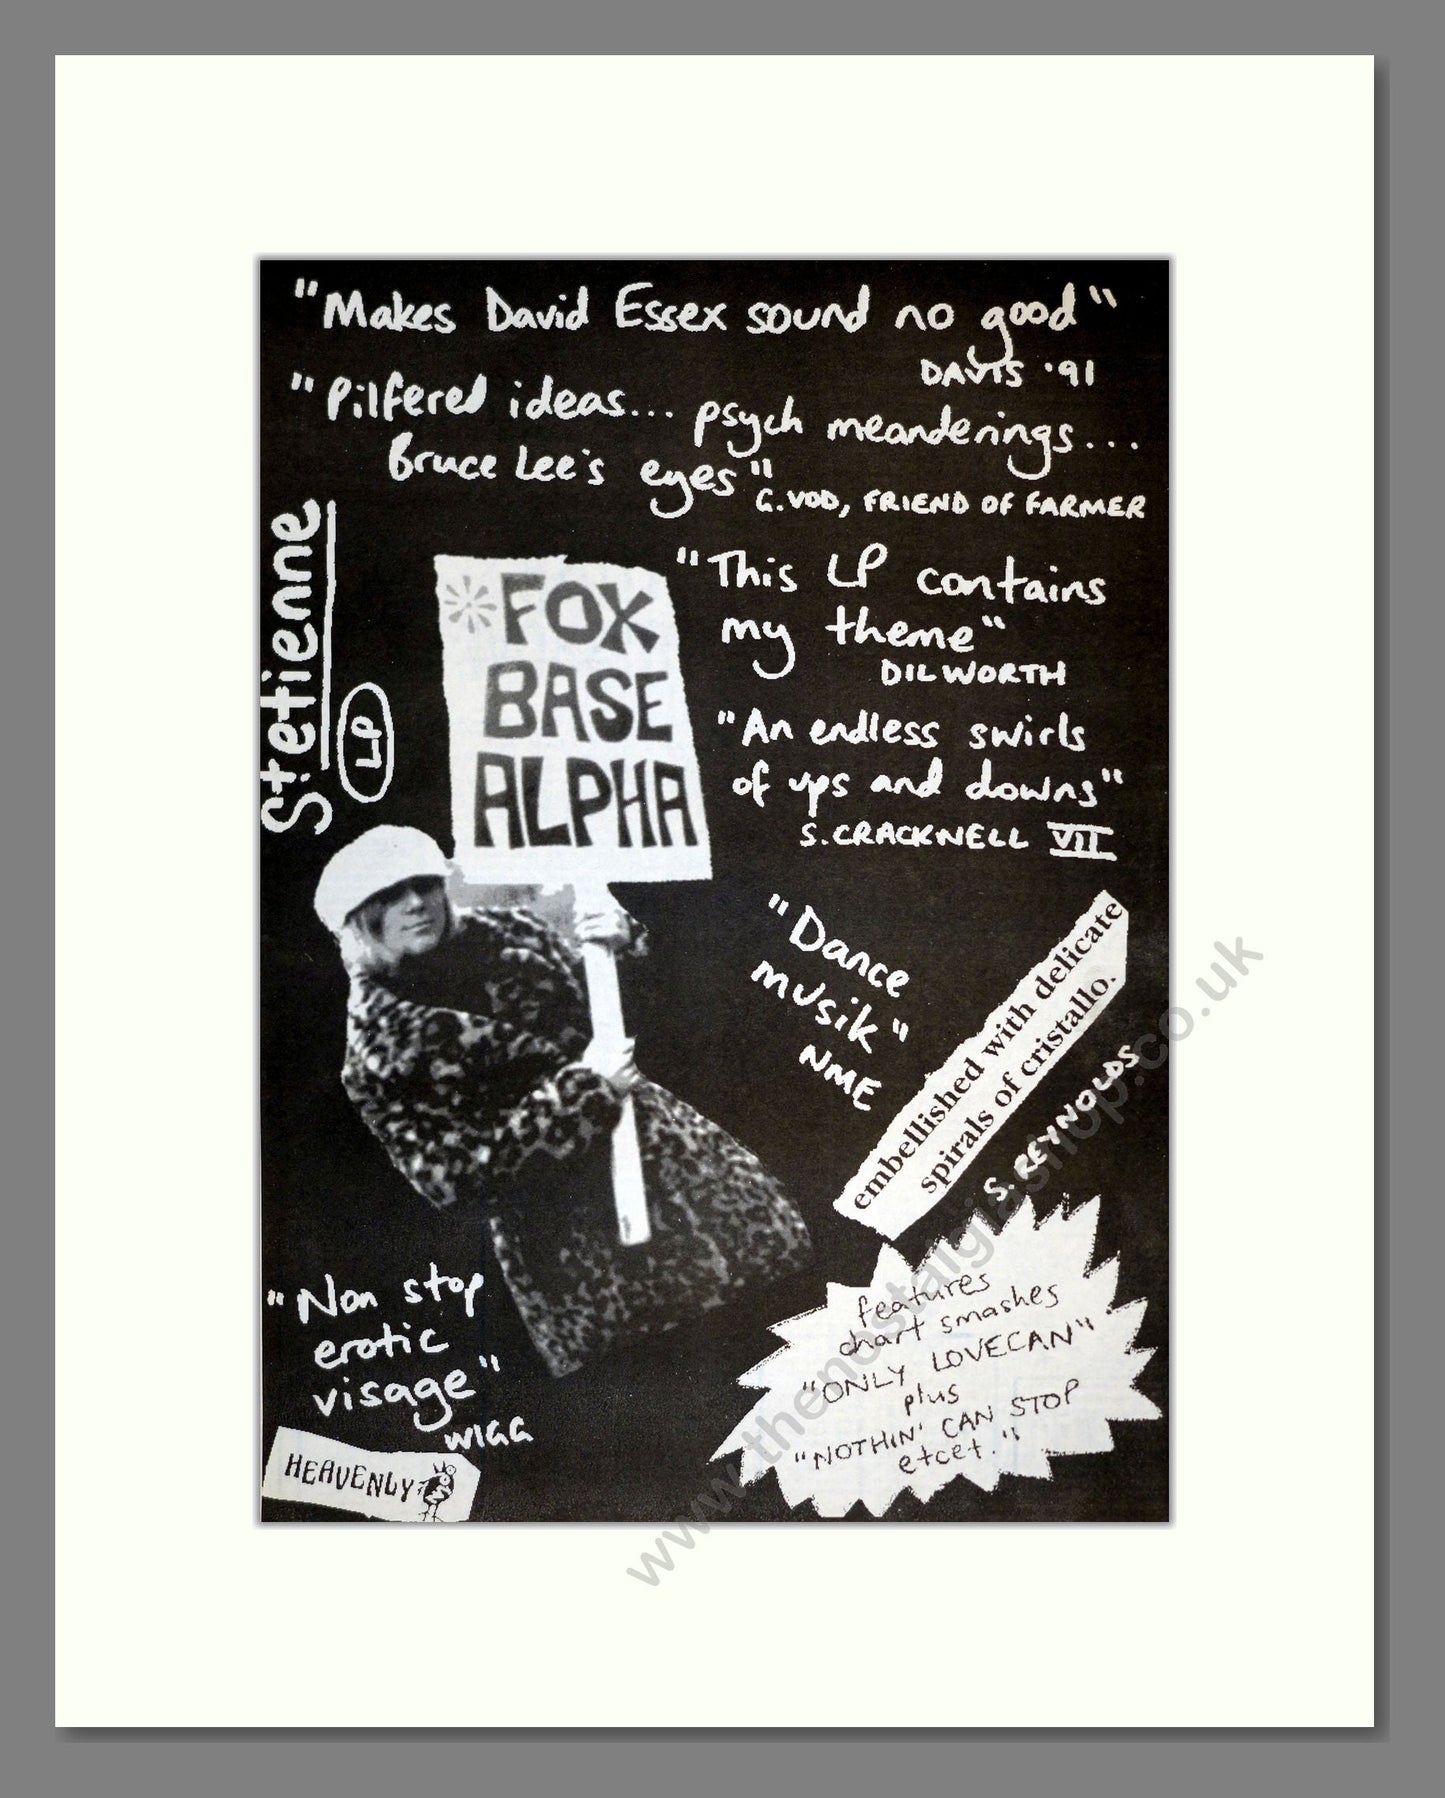 "Makes David Essex sound no good"
DAVIS '91
"Pilfered ideas... psych meanderings...
Bruce Lee's eyes"
G.VOD, FRIEND OF FARMER
Stetienne
LP
FOX
BASE
ALPHA
"This LP contains
my theme"
DILWORTH
"An endless swirls
of ups and downs"
S.CRACKNELL VII
"Dance
musik"
NME
embellished with delicate
spirals of cristallo.
S. REYNOLDS
"Non stop
erotic
visage"
WIGG
HEAVENLY
features
chart smashes
"ONLY LOVECAN"
plus
"NOTHIN' CAN STOP
etcet."
www.thenostalgiashop.co.uk